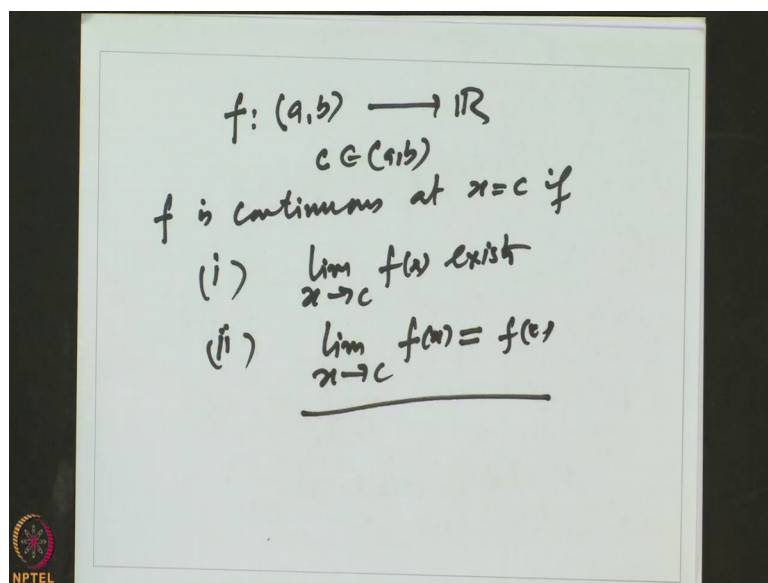 f: (a,b) ⟶ ℝ
c ∈ (a,b)
f is continuous at x=c if
(i) lim f(x) exist
x→c
(ii) lim f(x) = f(c)
x→c
NPTEL